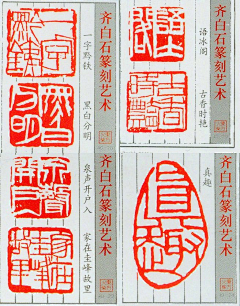 齐白石篆刻艺术
一字黔铁
黑白分明
齐白石篆刻艺术
语冰阁
古香时艳
齐白石篆刻艺术
泉声开户入
家在圭峰故里
齐白石篆刻艺术
真趣